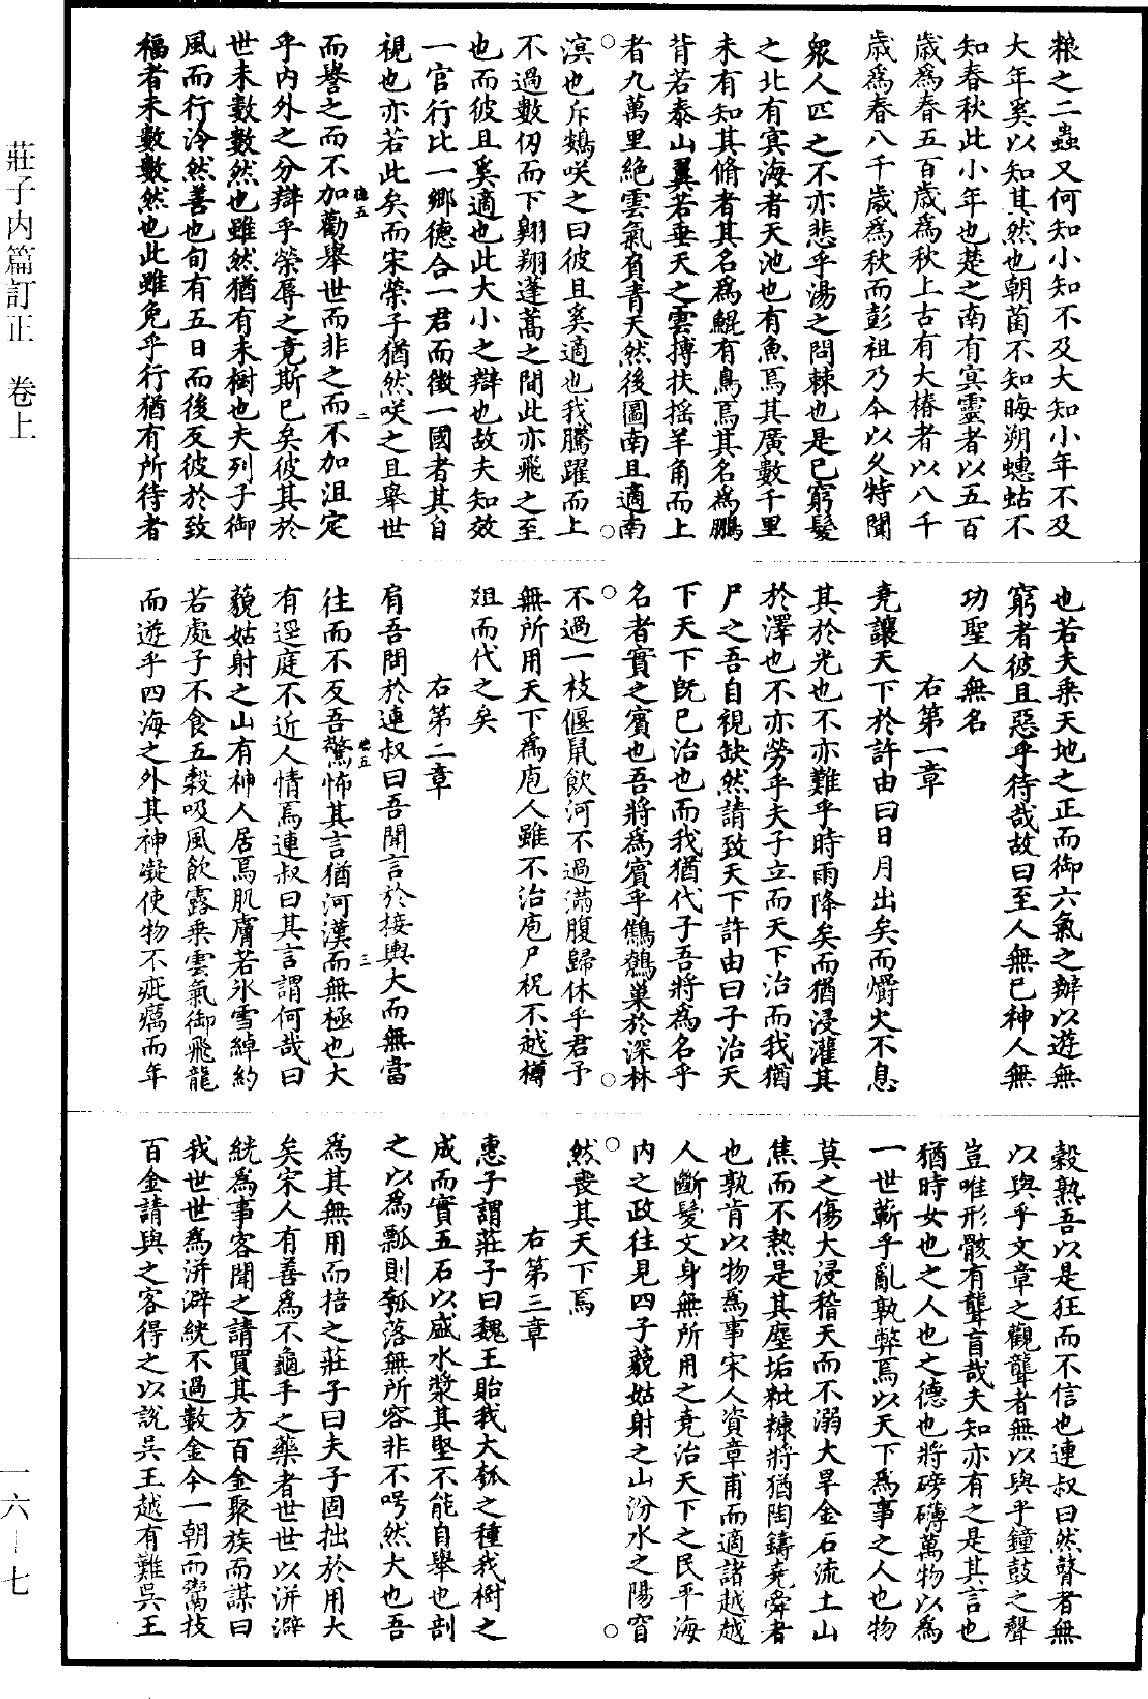 莊子内篇訂正　卷上
糧之二蟲又何知小知不及大知小年不及
大年奚以知其然也朝菌不知晦朔蟪蛄不
知春秋此小年也楚之南有冥靈者以五百
歲爲春五百歲爲秋上古有大椿者以八千
歲爲春八千歲爲秋而彭祖乃今以久特聞
衆人匹之不亦悲乎湯之問棘也是已窮髮
之北有冥海者天池也有魚焉其廣數千里
未有知其脩者其名爲鯤有鳥焉其名爲鵬
背若泰山翼若垂天之雲摶扶搖羊角而上
者九萬里絶雲氣負青天然後圖南且適南
溟也斥鷃咲之曰彼且奚適也我騰躍而上
不過數仞而下翱翔蓬蒿之間此亦飛之至
也而彼且奚適也此大小之辯也故夫知效
一官行比一鄉德合一君而徵一國者其自
視也亦若此矣而宋榮子猶然咲之且舉世
而譽之而不加勸舉世而非之而不加沮定
乎内外之分辯乎榮辱之竟斯已矣彼其於
世未數數然也雖然猶有未樹也夫列子御
風而行泠然善也旬有五日而後反彼於致
福者未數數然也此雖免乎行猶有所待者
德五
二
也若夫乘天地之正而御六氣之辯以遊無
窮者彼且惡乎待哉故曰至人無已神人無
功聖人無名
右第一章
堯讓天下於許由曰日月出矣而爝火不息
其於光也不亦難乎時雨降矣而猶浸灌其
於澤也不亦勞乎夫子立而天下治而我猶
尸之吾自視缺然請致天下許由曰子治天
下天下既已治也而我猶代子吾將爲名乎
名者實之賓也吾將爲賓乎鷦鷯巢於深林
不過一枝偃鼠飲河不過滿腹歸休乎君予
無所用天下爲庖人雖不治庖尸祝不越樽
俎而代之矣
右第二章
肩吾問於連叔曰吾聞言於接輿大而無當
往而不反吾驚怖其言猶河漢而無極也大
有逕庭不近人情焉連叔曰其言謂何哉曰
藐姑射之山有神人居焉肌膚若冰雪綽約
若處子不食五穀吸風飲露乘雲氣御飛龍
而遊乎四海之外其神凝使物不疵癘而年
德五
三
穀熟吾以是狂而不信也連叔曰然瞽者無
以與乎文章之觀聾者無以與乎鐘鼓之聲
豈唯形骸有聾盲哉夫知亦有之是其言也
猶時女也之人也之德也將磅礴萬物以爲
一世蘄乎亂孰弊焉以天下爲事之人也物
莫之傷大浸稽天而不溺大旱金石流土山
焦而不熱是其塵垢粃糠將猶陶鑄堯舜者
也孰肯以物爲事宋人資章甫而適諸越越
人斷髮文身無所用之堯治天下之民平海
内之政往見四子藐姑射之山汾水之陽窅
然喪其天下焉
右第三章
惠子謂莊子曰魏王貽我大瓠之種我樹之
成而實五石以盛水漿其堅不能自舉也剖
之以爲瓢則瓠落無所容非不呺然大也吾
爲其無用而掊之莊子曰夫子固拙於用大
矣宋人有善爲不龜手之藥者世世以洴澼
絖爲事客聞之請買其方百金聚族而謀曰
我世世爲洴澼絖不過數金今一朝而鬻技
百金請與之客得之以說吳王越有難吳王
一六—七